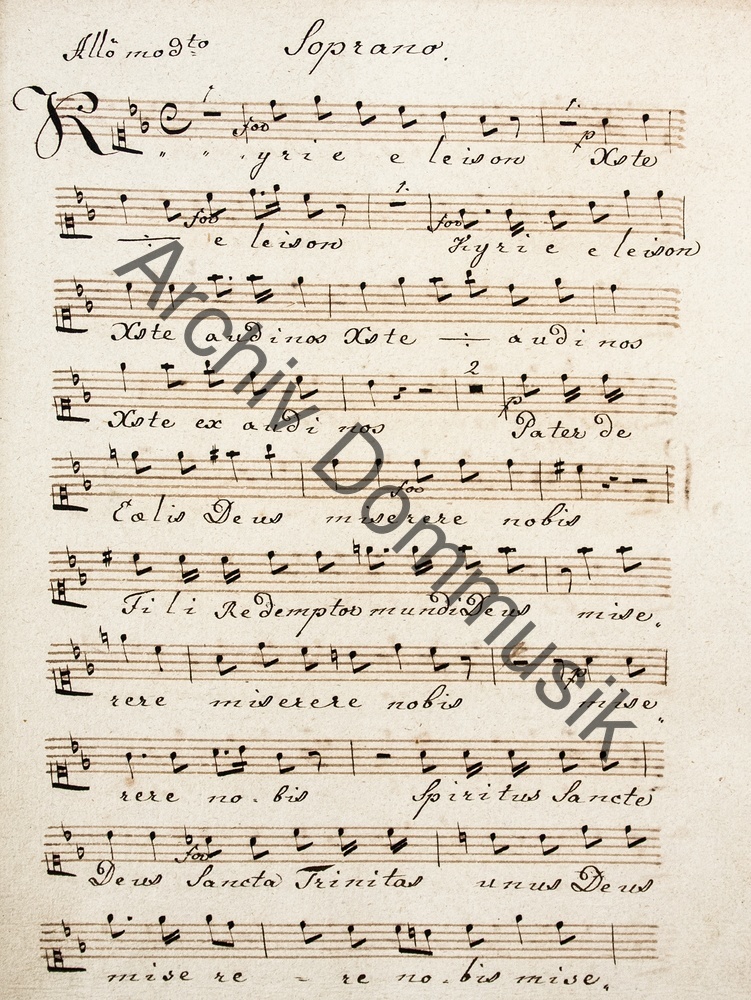 All̊o modto Soprano.
1. for 1. p
Kyrie eleison Xste
for 1. for
÷ eleison Kyrie eleison
Xste audinos Xste ÷ audi nos
2 p
Xste exaudi nos Pater de
for
Cœlis Deus miserere nobis
Fili Redemptor mundi Deus mise„
p
rere miserere nobis mise„
rere no-bis Spiritus Sancte
for
Deus Sancta Trinitas unus Deus
mise re - re no-bis mise„
Archiv Dommusik